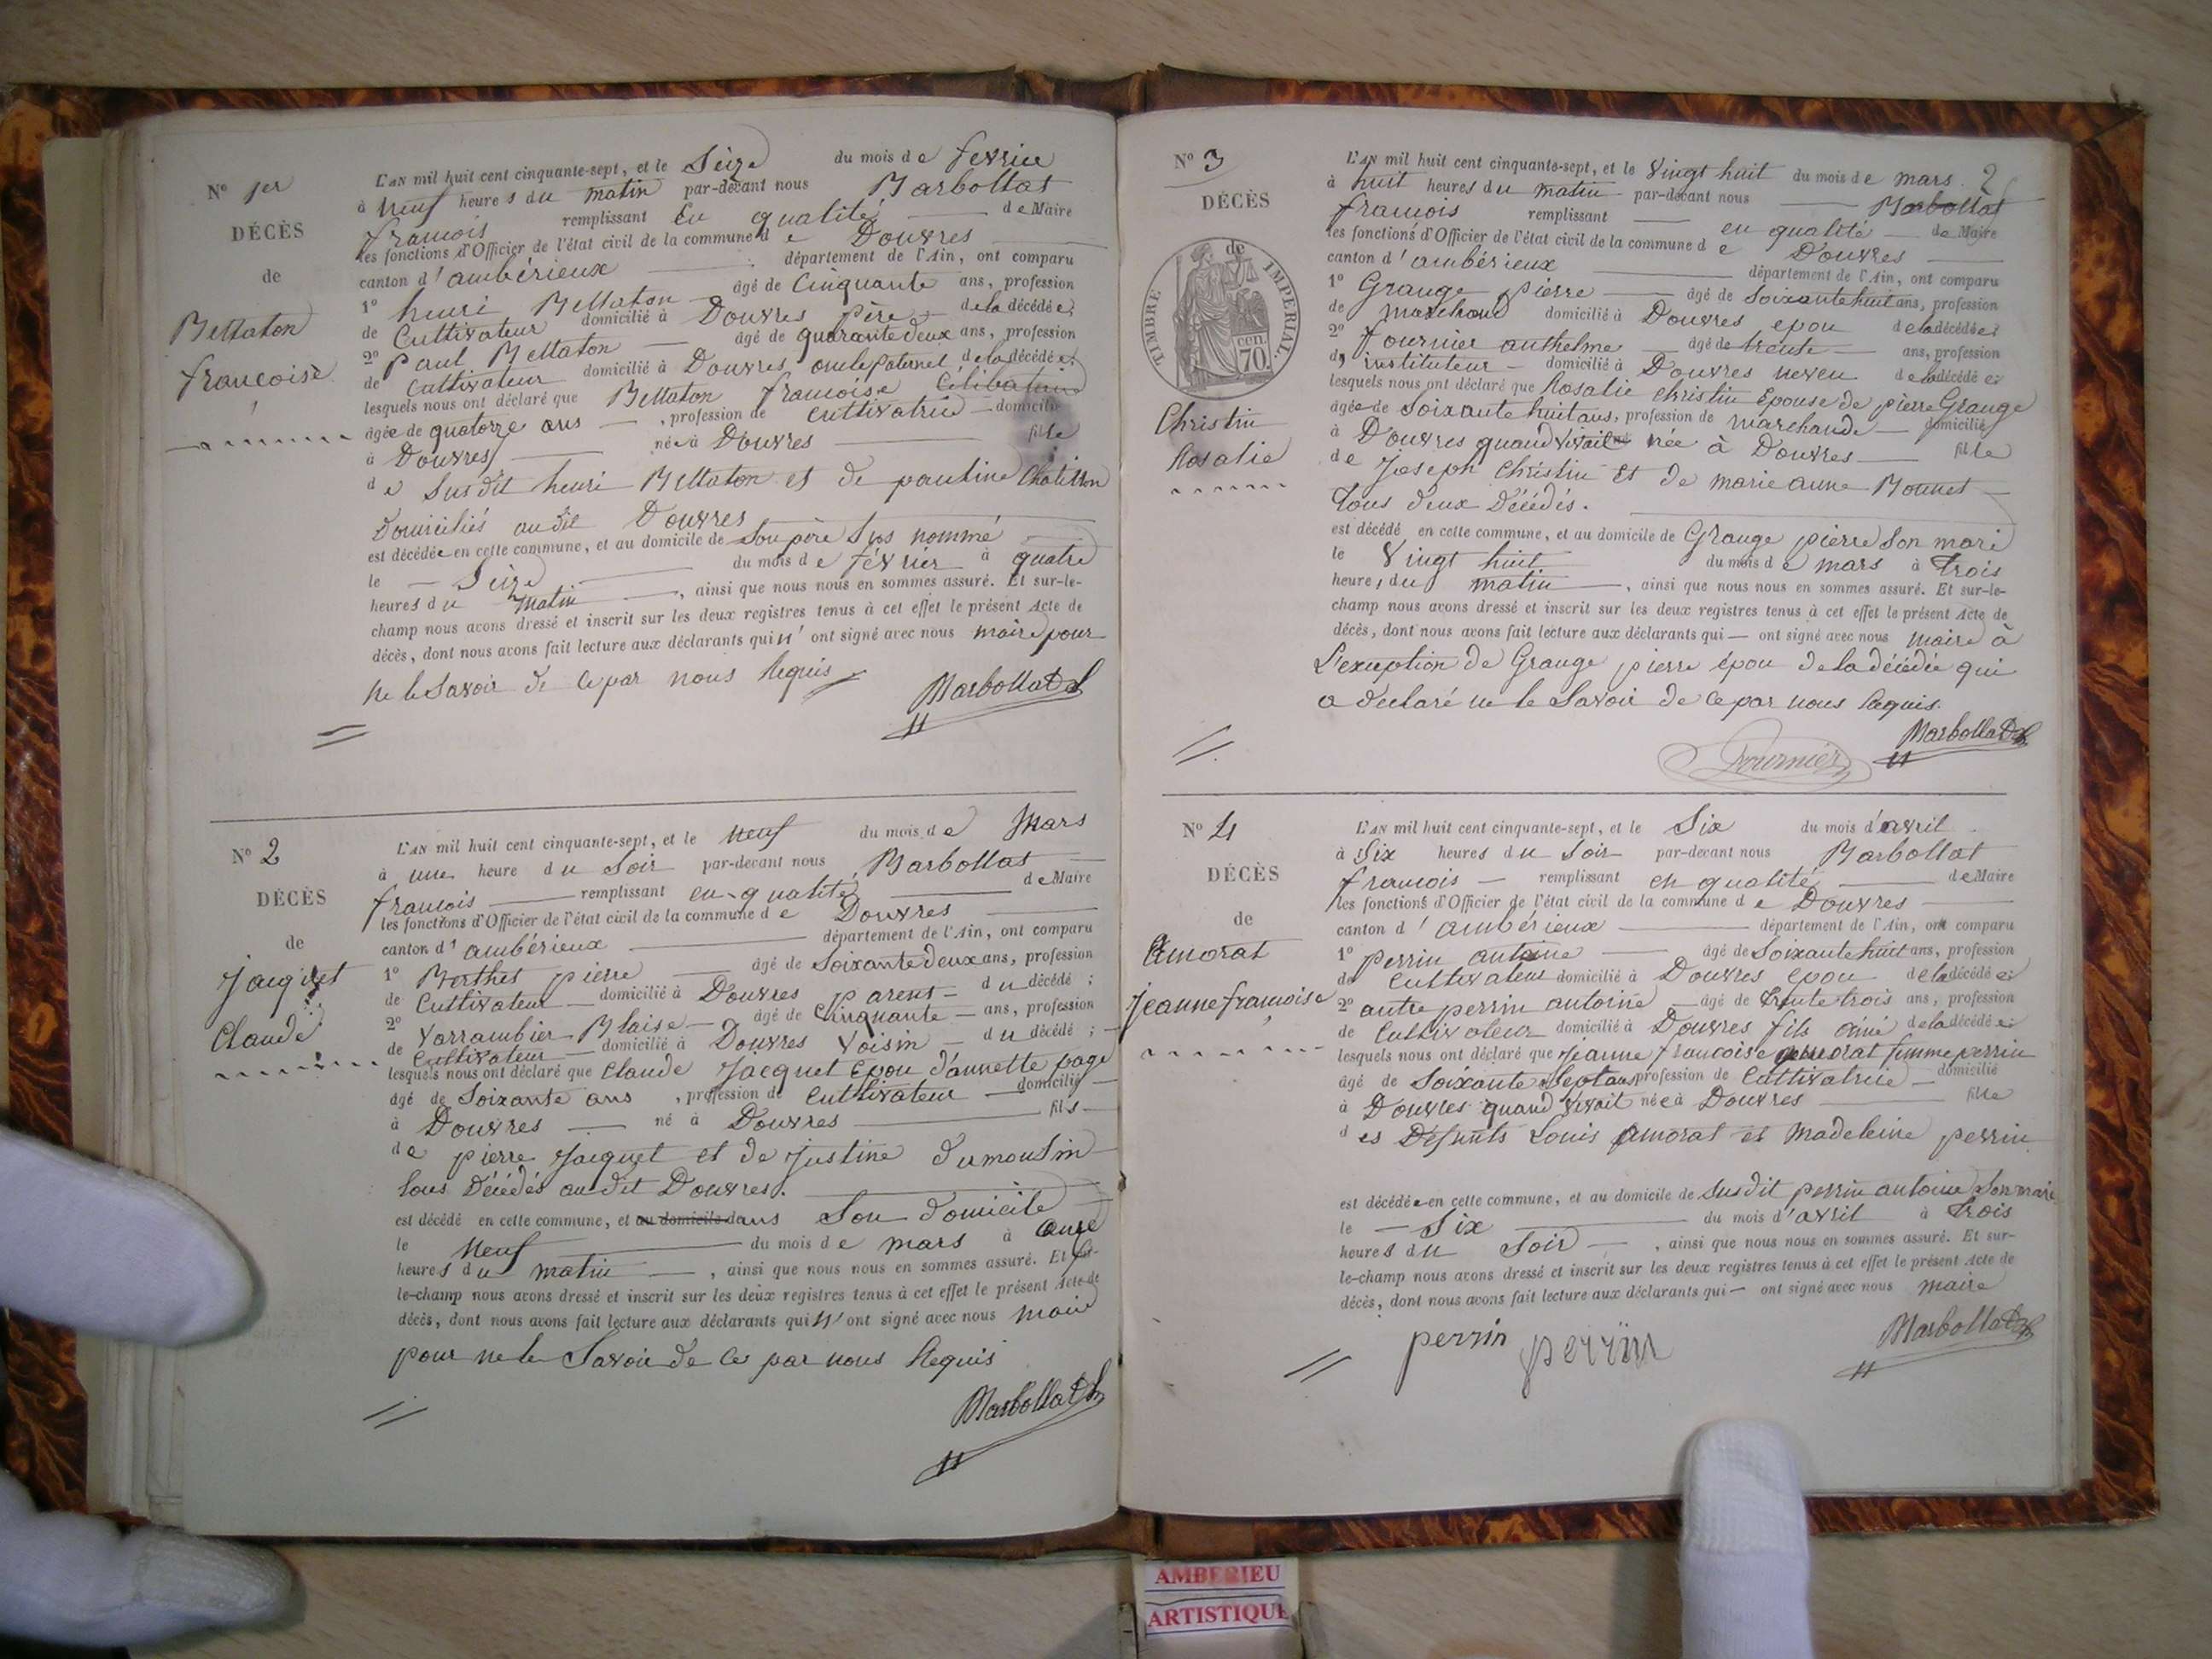 N° 1er
DÉCÈS
de
Bellaton
françoise
L'AN mil huit cent cinquante-sept, et le Seize du mois de fevrier
à neuf heures du matin par-devant nous Marbollat
françois remplissant En qualité de Maire
les fonctions d'Officier de l'état civil de la commune de Douvres
canton d'ambérieux département de l'Ain, ont comparu
1° henri Bellaton âgé de Cinquante ans, profession
de Cultivateur domicilié à Douvres père de la décédée;
2° Paul Bellaton âgé de quarante deux ans, profession
de Cultivateur domicilié à Douvres oncle paternel de la décédée;
lesquels nous ont déclaré que Bellaton françoise Célibataire
âgée de quatorze ans, profession de Cultivatrice domicilié
à Douvres née à Douvres fille
de Susdit henri Bellaton et de pauline Chatillon
Domiciliés audit Douvres
est décédée en cette commune, et au domicile de Son père Sus nommé
le Seize du mois de février à quatre
heures du matin, ainsi que nous nous en sommes assuré. Et sur-le-
champ nous avons dressé et inscrit sur les deux registres tenus à cet effet le présent Acte de
décès, dont nous avons fait lecture aux déclarants qui n'ont signé avec nous maire pour
ne le Savoir de ce par nous Requis
Marbollat
N° 2
DÉCÈS
de
Jacquet
Claude
L'AN mil huit cent cinquante-sept, et le neuf du mois de Mars
à une heure du Soir par-devant nous Marbollat
françois remplissant en qualité de Maire
les fonctions d'Officier de l'état civil de la commune de Douvres
canton d'ambérieux département de l'Ain, ont comparu
1° Berthet pierre âgé de Soixante deux ans, profession
de Cultivateur domicilié à Douvres parent du décédé;
2° Varrambier Blaise âgé de Cinquante ans, profession
de Cultivateur domicilié à Douvres Voisin du décédé;
lesquels nous ont déclaré que Claude Jacquet Epou d'annette page
âgé de Soixante ans, profession de Cultivateur domicilié
à Douvres né à Douvres fils
de pierre Jacquet et de Justine dumoulin
tous Décédés audit Douvres.
est décédé en cette commune, et au domicile dans Son domicile
le neuf du mois de mars à onze
heures du matin, ainsi que nous nous en sommes assuré. Et sur-
le-champ nous avons dressé et inscrit sur les deux registres tenus à cet effet le présent Acte de
décès, dont nous avons fait lecture aux déclarants qui n'ont signé avec nous maire
pour ne le Savoir de ce par nous Requis
Marbollat
N° 3
DÉCÈS
de
TIMBRE IMPERIAL.
cen. 70.
Christin
Rosalie
2
L'AN mil huit cent cinquante-sept, et le Vingt huit du mois de mars
à huit heures du matin par-devant nous Marbollat
françois remplissant en qualité de Maire
les fonctions d'Officier de l'état civil de la commune de Douvres
canton d'ambérieux département de l'Ain, ont comparu
1° Grange pierre âgé de Soixante huit ans, profession
de marchand domicilié à Douvres epou de la décédée;
2° fournier anthelme âgé de trente ans, profession
d'instituteur domicilié à Douvres neveu de la décédée;
lesquels nous ont déclaré que Rosalie christin Epouse de pierre Grange
âgée de Soixante huit ans, profession de marchande domicilié
à Douvres quand vivait née à Douvres fille
de Joseph Christin Et de marie anne Monnet
tous deux Décédés.
est décédé en cette commune, et au domicile de Grange pierre Son mari
le Vingt huit du mois de mars à trois
heures du matin, ainsi que nous nous en sommes assuré. Et sur-le-
champ nous avons dressé et inscrit sur les deux registres tenus à cet effet le présent Acte de
décès, dont nous avons fait lecture aux déclarants qui — ont signé avec nous maire à
L'exception de Grange pierre épou de la décédée qui
a declaré ne le Savoir de ce par nous Requis.
Fournier Marbollat
N° 4
DÉCÈS
de
Amorat
jeanne françoise
L'AN mil huit cent cinquante-sept, et le Six du mois d'avril
à Six heures du Soir par-devant nous Marbollat
françois remplissant en qualité de Maire
les fonctions d'Officier de l'état civil de la commune de Douvres
canton d'ambérieux département de l'Ain, ont comparu
1° perrin antoine âgé de Soixante huit ans, profession
de Cultivateur domicilié à Douvres epou de la décédée;
2° autre perrin antoine âgé de trente trois ans, profession
de Cultivateur domicilié à Douvres fils ainé de la décédée;
lesquels nous ont déclaré que jeanne françoise amorat femme perrin
âgé de Soixante Sept ans profession de Cultivatrice domicilié
à Douvres quand vivait née à Douvres fille
des Défunts Louis amorat et Madeleine perrin
est décédée en cette commune, et au domicile de Susdit perrin antoine Son mari
le Six du mois d'avril à trois
heures du Soir, ainsi que nous nous en sommes assuré. Et sur-
le-champ nous avons dressé et inscrit sur les deux registres tenus à cet effet le présent Acte de
décès, dont nous avons fait lecture aux déclarants qui — ont signé avec nous maire
perrin perrin Marbollat
AMBERIEU
ARTISTIQUE